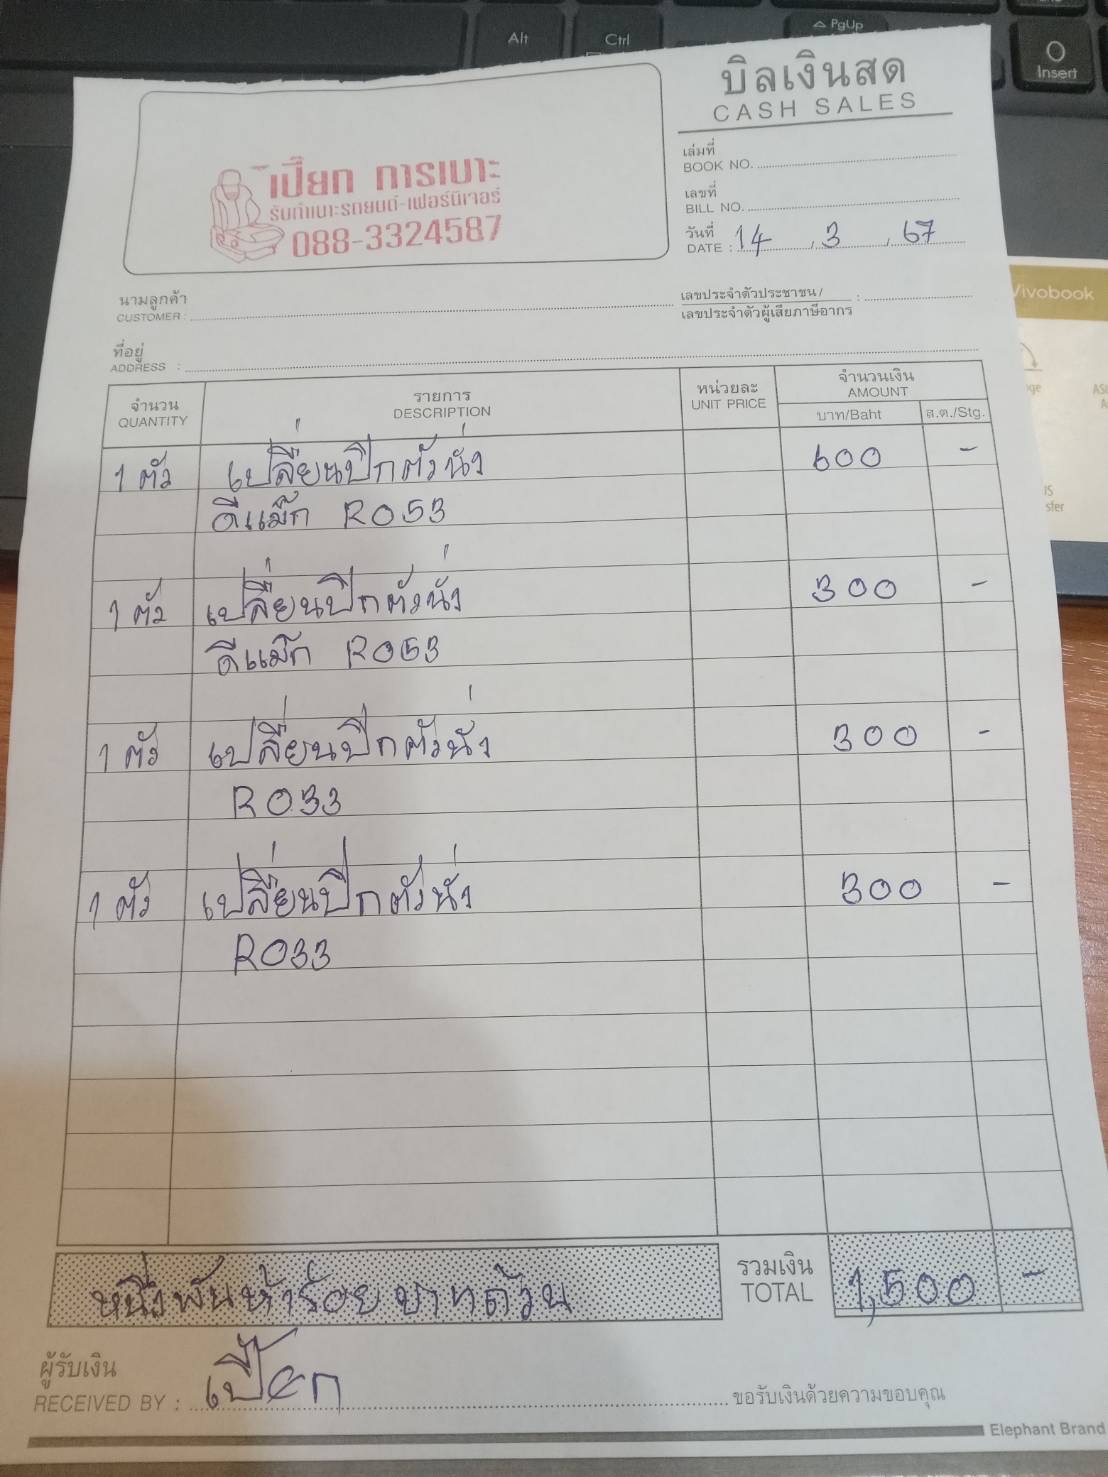 Alt
Ctrl
PgUp
Insert
บิลเงินสด
CASH SALES
เล่มที่
BOOK NO.
เลขที่
BILL NO.
วันที่
DATE : 14 / 3 / 67
เปี๊ยก การเบาะ
รับทำเบาะรถยนต์-เฟอร์นิเจอร์
088-3324587
นามลูกค้า
CUSTOMER :
เลขประจำตัวประชาชน /
เลขประจำตัวผู้เสียภาษีอากร :
ที่อยู่
ADDRESS :
จำนวน
QUANTITY
รายการ
DESCRIPTION
หน่วยละ
UNIT PRICE
จำนวนเงิน
AMOUNT
บาท/Baht
ส.ต./Stg.
1 ตัว เปลี่ยนปีกตัวนั่ง 600 -
ดีแม็ก R053
1 ตัว เปลี่ยนปีกตัวนั่ง 300 -
ดีแม็ก R053
1 ตัว เปลี่ยนปีกตัวนั่ง 300 -
R033
1 ตัว เปลี่ยนปีกตัวนั่ง 300 -
R033
หนึ่งพันห้าร้อยบาทถ้วน
รวมเงิน
TOTAL
1,500 -
ผู้รับเงิน
RECEIVED BY : เปี๊ยก
ขอรับเงินด้วยความขอบคุณ
Elephant Brand
Vivobook